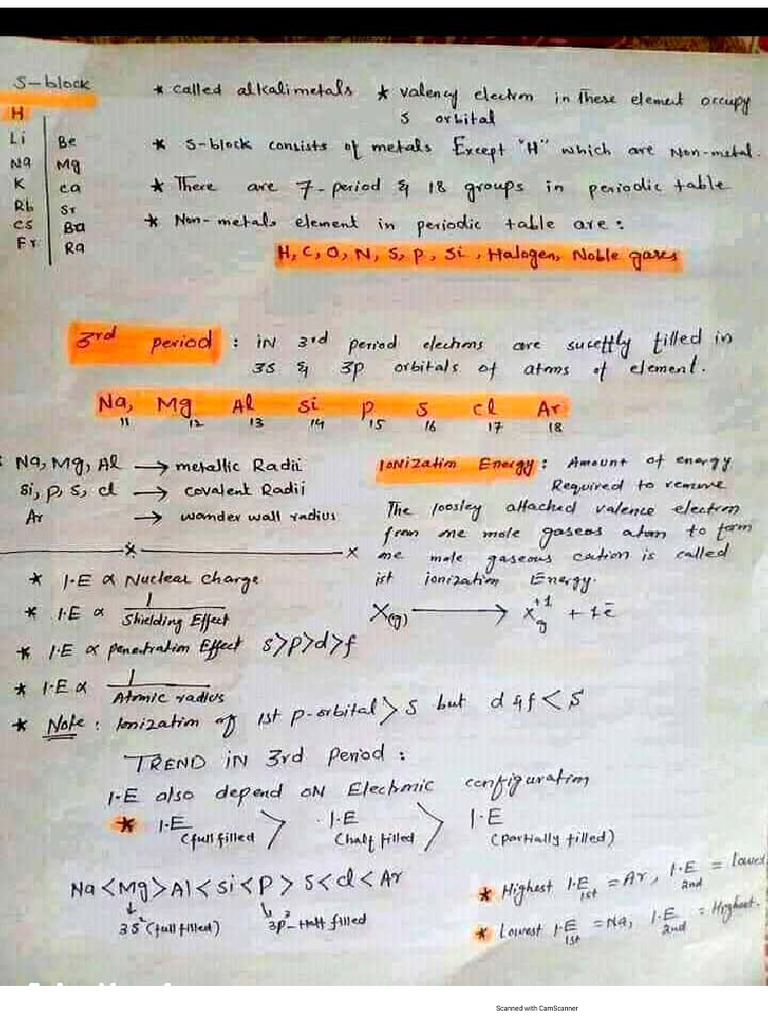 S-block
* called alkali metals * valency electron in these element occupy
S orbital
H
Li Be
Na Mg
K Ca
Rb Sr
Cs Ba
Fr Ra
* S-block consists of metals Except "H" which are Non-metal.
* There are 7-period & 18 groups in periodic table
* Non-metals element in periodic table are:
H, C, O, N, S, P, Si, Halogen, Noble gases
3rd period : iN 3rd period electrons are sucettly filled in
3s & 3p orbitals of atoms of element.
Na, Mg Al Si P S Cl Ar
11 12 13 14 15 16 17 18
Na, Mg, Al → metallic Radii
Si, P, S, Cl → covalent Radii
Ar → wander wall radius
x x
Ionization Energy: Amount of energy
Required to remove
The loosley attached valence electron
from one mole gaseos atom to form
one mole gaseous cation is called
ist ionization Energy.
X(g) → X+1 g + 1ē
* I.E ∝ Nuclear charge
* I.E ∝ 1 / Shielding Effect
* I.E ∝ penetration Effect s>p>d>f
* I.E ∝ 1 / Atomic radius
* Note: Ionization of 1st p-orbital > S but d & f < S
TREND iN 3rd Period :
I.E also depend ON Electronic configuration
* I.E (full filled) > I.E (half filled) > I.E (partially filled)
Na < Mg > Al < Si < P > S < Cl < Ar
3S² (full filled) 3p³ - Half filled
* Highest I.E 1st = Ar, I.E 2nd = Lowest
* Lowest I.E 1st = Na, I.E 2nd = Highest.
Scanned with CamScanner